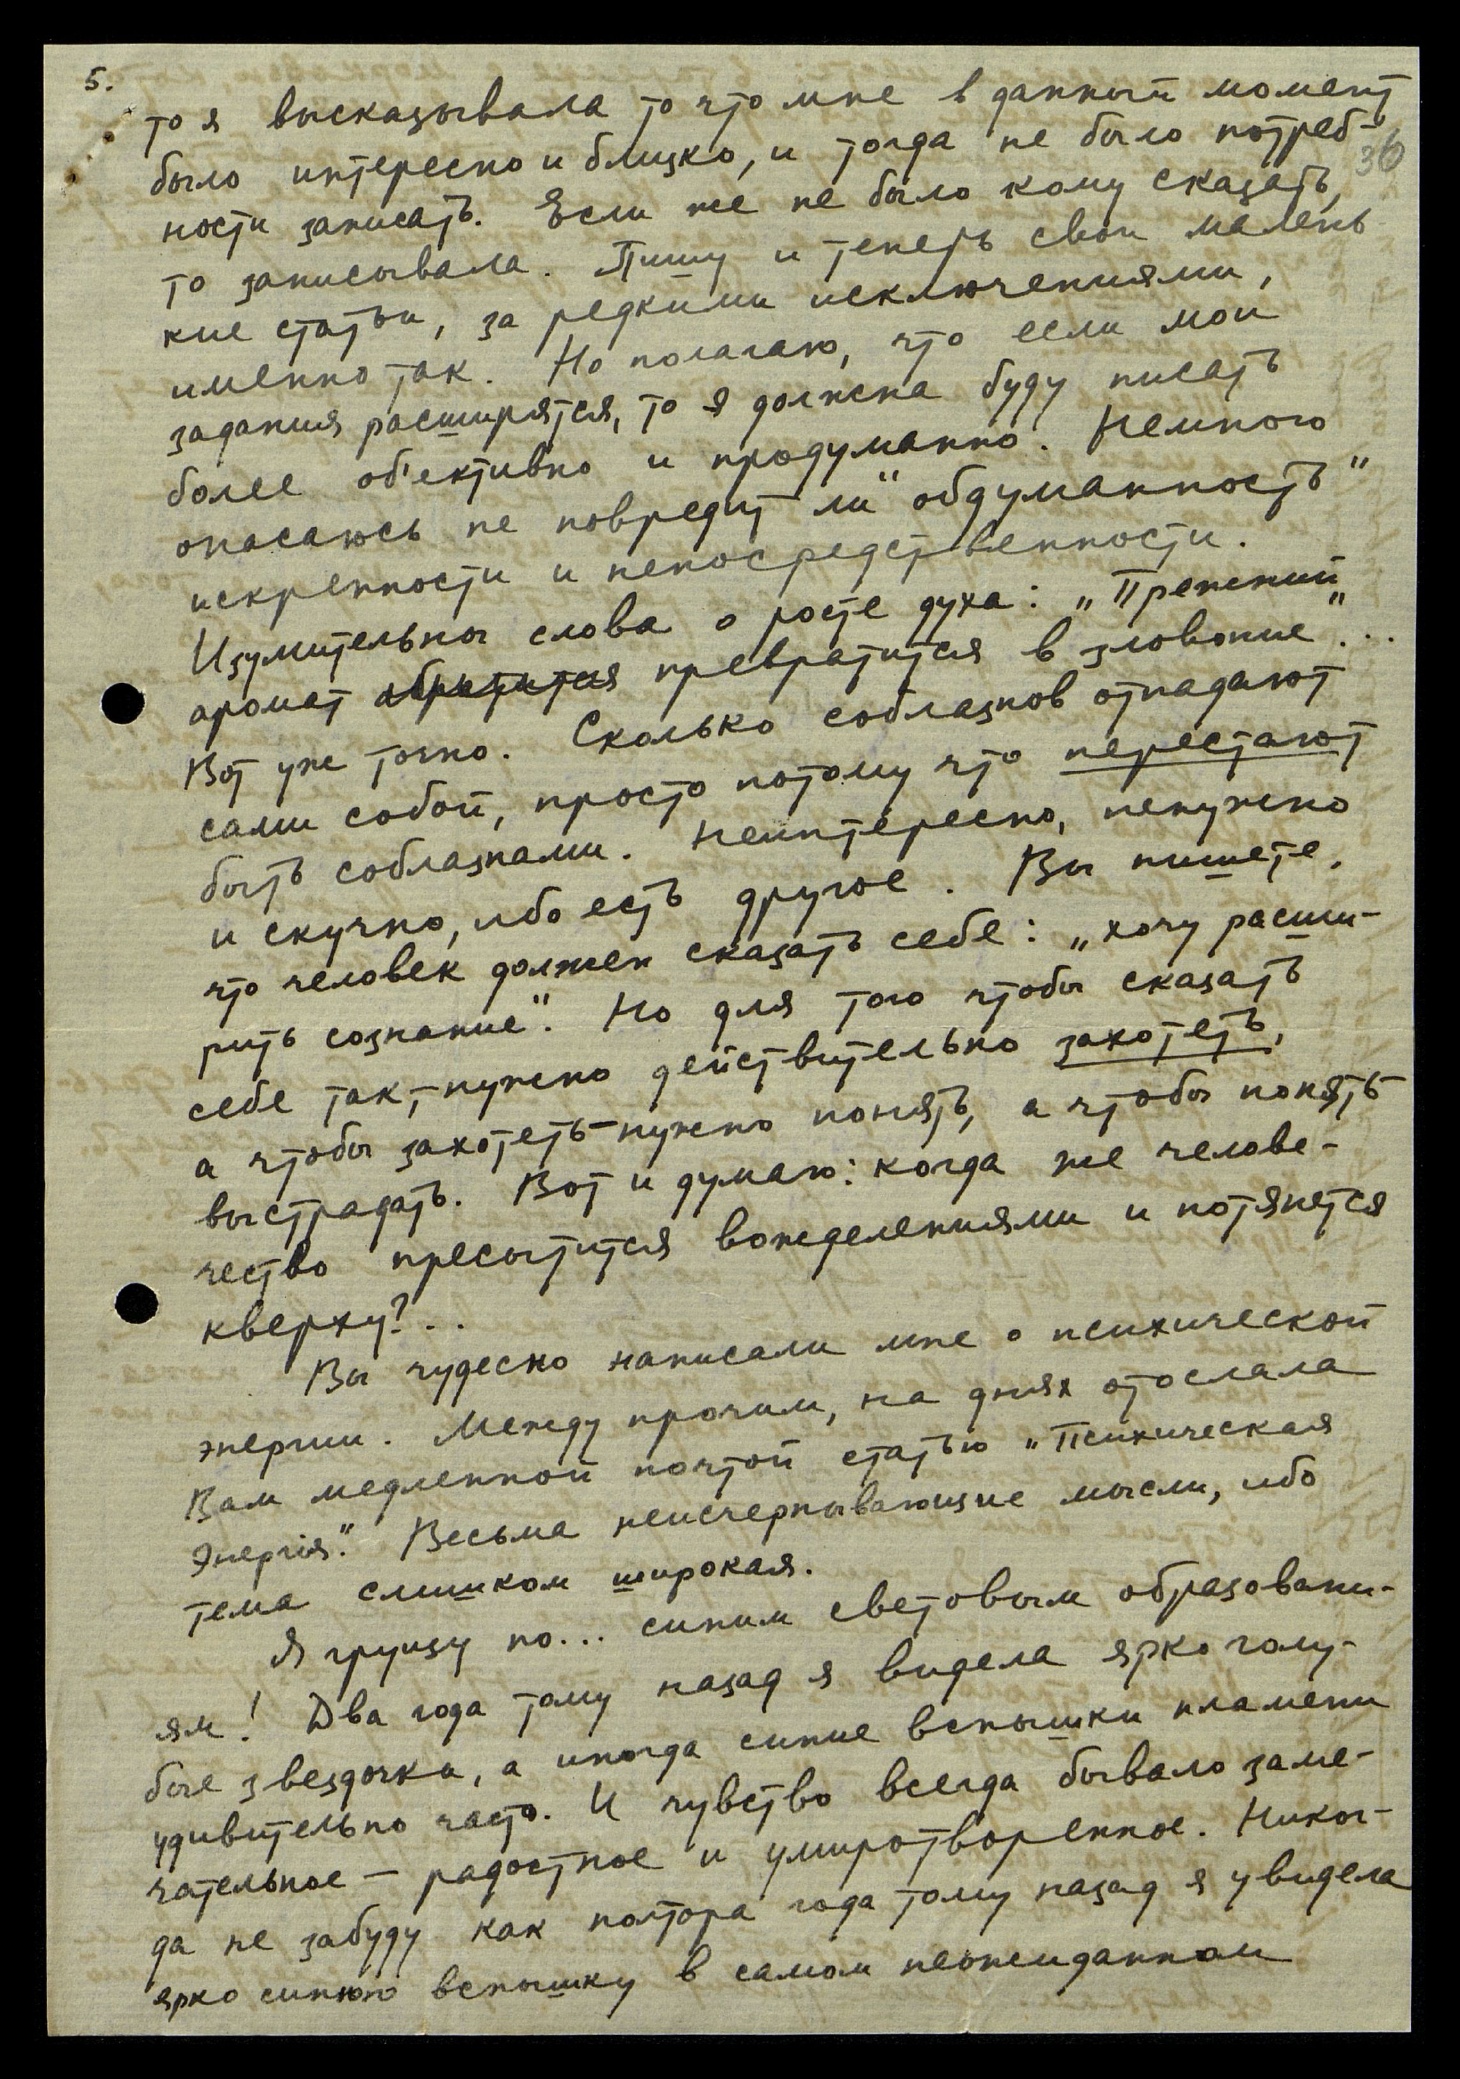 5.
то я высказывала то что мне в данный момент
было интересно и близко, и тогда не было потреб-
36
ности записать. Если же не было кому сказать,
то записывала. Пишу и теперь свои малень
кие статьи, за редкими исключениями,
именно так. Но полагаю, что если мои
задания расширятся, то я должна буду писать
более об'ективно и продуманно. Немного
опасаюсь не повредит ли "обдуманность"
искренности и непосредственности.
Изумительны слова о росте духа: „Прежний
аромат обратится превратится в зловоние"...
Вот уже точно. Сколько соблазнов отпадают
сами собой, просто потому что перестают
быть соблазнами. Неинтересно, ненужно
и скучно, ибо есть другое. Вы пишете,
что человек должен сказать себе: „хочу расши-
рить сознание". Но для того чтобы сказать
себе так, – нужно действительно захотеть,
а чтобы захотеть – нужно понять, а чтобы понять –
выстрадать. Вот и думаю: когда же челове-
чество пресытится вожделениями и потянется
кверху?..
Вы чудесно написали мне о психической
энергии. Между прочим, на днях отослала
Вам медленной почтой статью „Психическая
Энергія". Весьма неисчерпывающие мысли, ибо
тема слишком широкая.
Я грущу по... синим световым образовани-
ям! Два года тому назад я видела ярко голу-
бые звездочки, а иногда синие вспышки пламени
удивительно часто. И чувство всегда бывало заме-
чательное – радостное и умиротворенное. Никог-
да не забуду как полтора года тому назад я увидела
ярко синюю вспышку в самом неожиданном